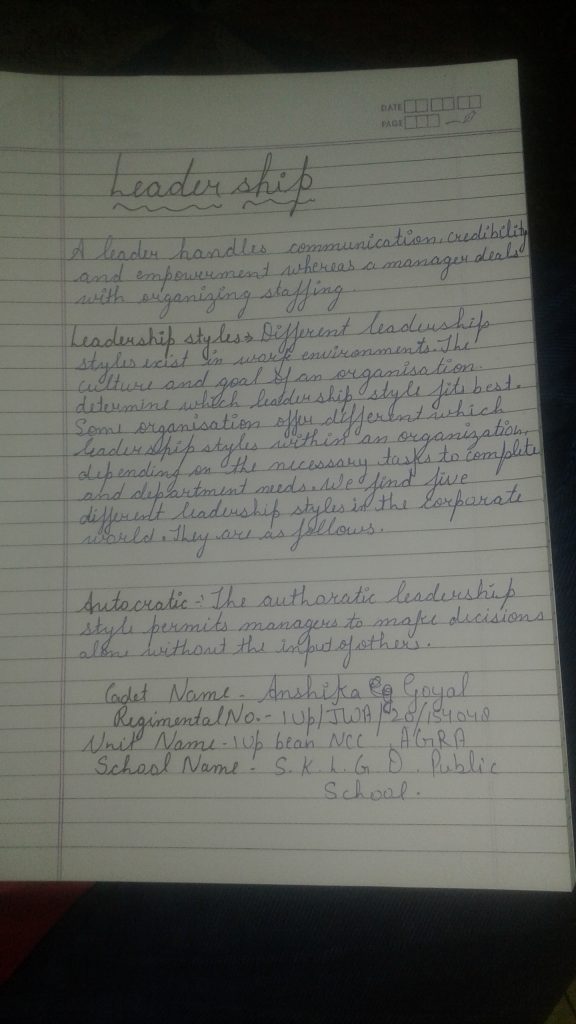 DATE
PAGE
Leadership
A leader handles communication, credibility
and empowerment whereas a manager deals
with organizing staffing.
Leadership styles → Different leadership
styles exist in work environments. The
culture and goal of an organisation
determine which leadership style fits best.
Some organisation offer different which
leadership styles within an organization,
depending on the necessary tasks to complete
and department needs. We find five
different leadership styles in the corporate
world. They are as follows.
Autocratic :- The authoratic leadership
style permits managers to make decisions
alone without the input of others.
Cadet Name - Anshika Goyal
Regimental No. - 1Up/JWA/20/154048
Unit Name - 1 Up bean NCC AGRA
School Name - S.K.L.G.D. Public
School.